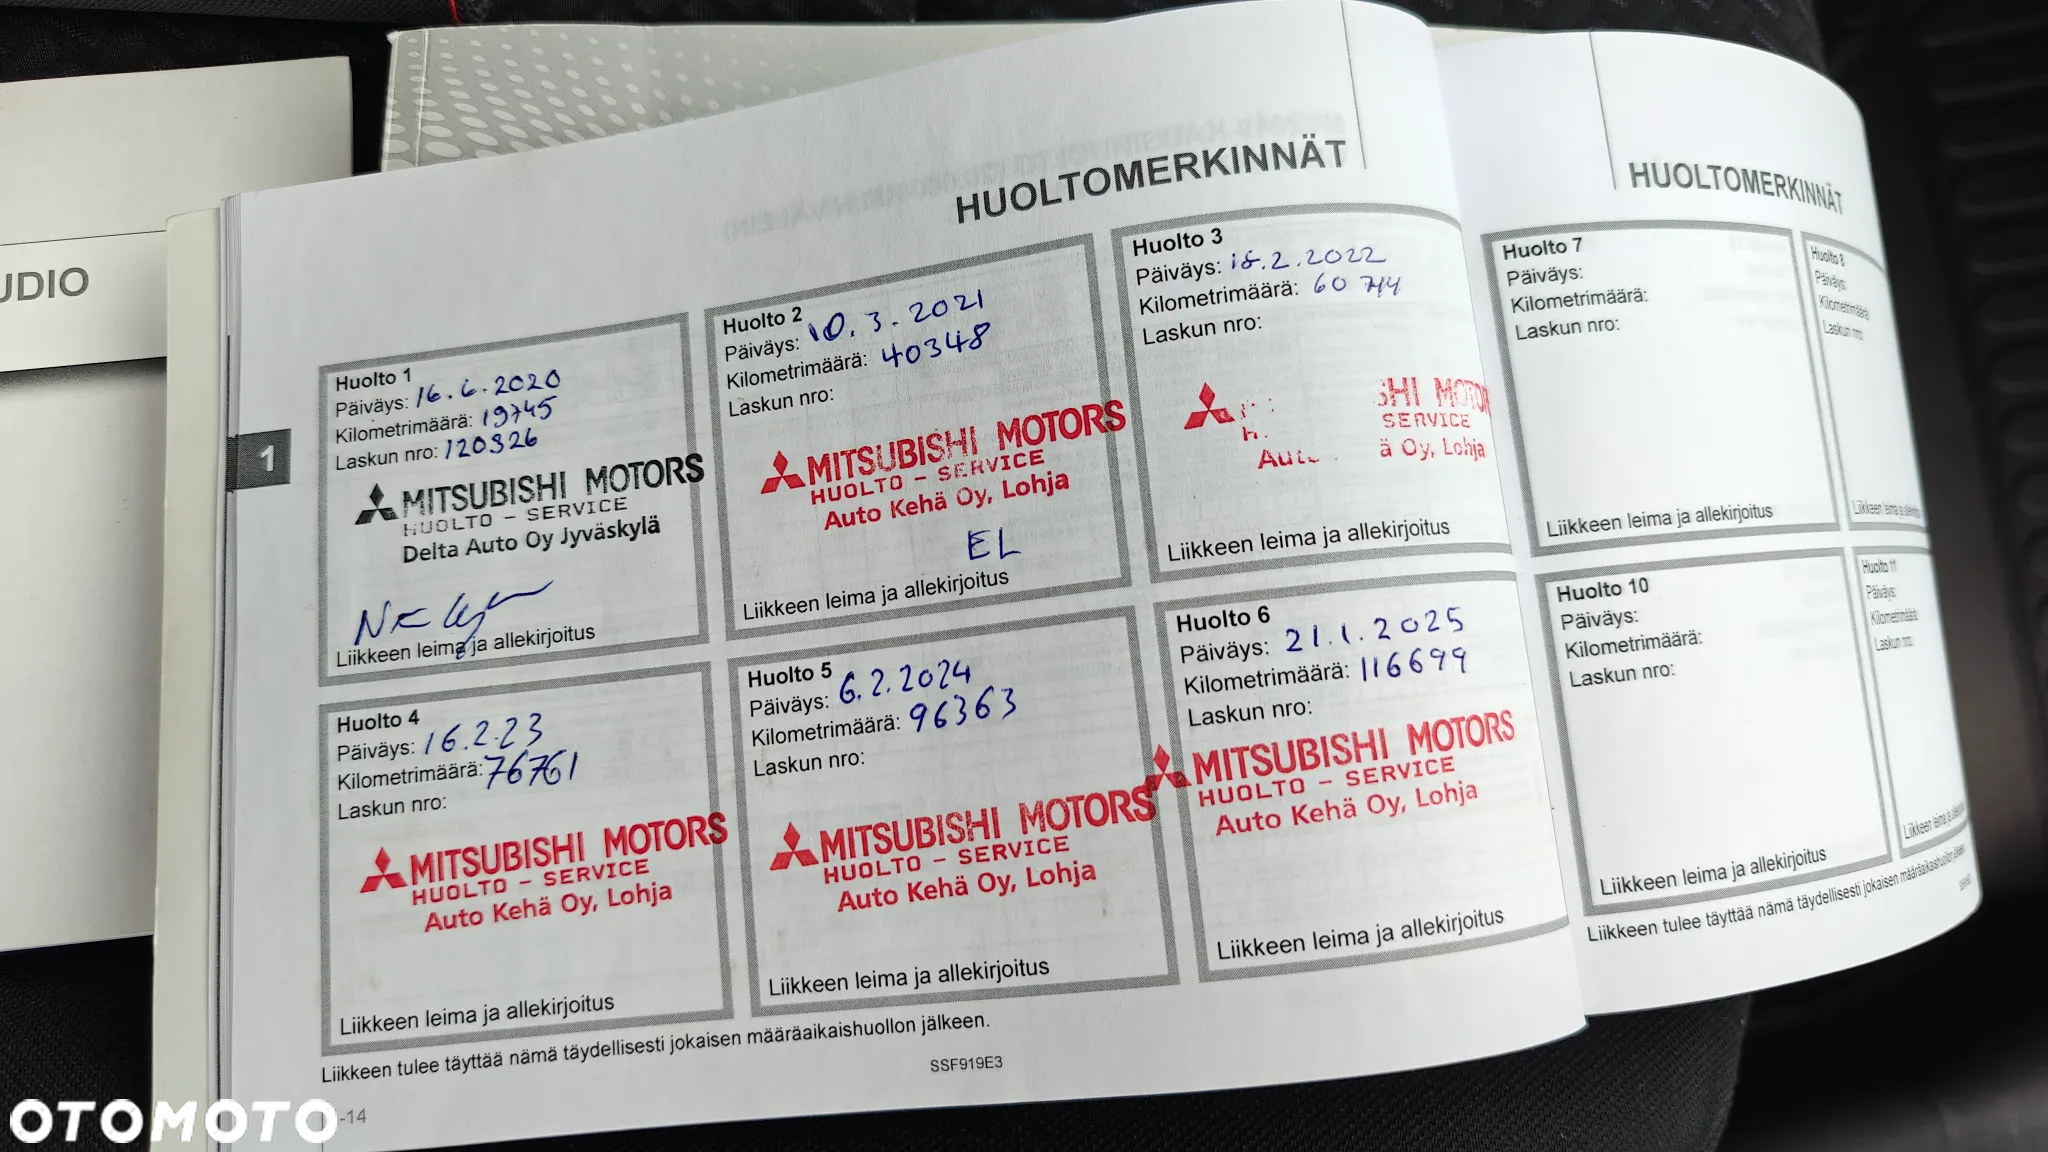 UDIO
HUOLTOMERKINNÄT
1
Huolto 1
Päiväys: 16.6.2020
Kilometrimäärä: 19745
Laskun nro: 120326
MITSUBISHI MOTORS
HUOLTO - SERVICE
Delta Auto Oy Jyväskylä
Liikkeen leima ja allekirjoitus
Huolto 2
Päiväys: 10.3.2021
Kilometrimäärä: 40348
Laskun nro:
MITSUBISHI MOTORS
HUOLTO - SERVICE
Auto Kehä Oy, Lohja
EL
Liikkeen leima ja allekirjoitus
Huolto 3
Päiväys: 18.2.2022
Kilometrimäärä: 60744
Laskun nro:
SHI MOTOR
SERVICE
ä Oy, Lohja
Liikkeen leima ja allekirjoitus
Huolto 4
Päiväys: 16.2.23
Kilometrimäärä: 76761
Laskun nro:
MITSUBISHI MOTORS
HUOLTO - SERVICE
Auto Kehä Oy, Lohja
Liikkeen leima ja allekirjoitus
Huolto 5
Päiväys: 6.2.2024
Kilometrimäärä: 96363
Laskun nro:
MITSUBISHI MOTORS
HUOLTO - SERVICE
Auto Kehä Oy, Lohja
Liikkeen leima ja allekirjoitus
Huolto 6
Päiväys: 21.1.2025
Kilometrimäärä: 116699
Laskun nro:
MITSUBISHI MOTORS
HUOLTO - SERVICE
Auto Kehä Oy, Lohja
Liikkeen leima ja allekirjoitus
Liikkeen tulee täyttää nämä täydellisesti jokaisen määräaikaishuollon jälkeen.
SSF919E3
-14
HUOLTOMERKINNÄT
Huolto 7
Päiväys:
Kilometrimäärä:
Laskun nro:
Liikkeen leima ja allekirjoitus
Huolto 8
Päiväys:
Kilometrimäärä
Laskun nro:
Liikkeen leima ja
Huolto 10
Päiväys:
Kilometrimäärä:
Laskun nro:
Liikkeen leima ja allekirjoitus
Huolto 11
Päiväys:
Kilometrimäärä
Laskun nro:
Liikkeen leima ja
Liikkeen tulee täyttää nämä täydellisesti jokaisen määräaikaishuollon jälkeen.
OTOMOTO